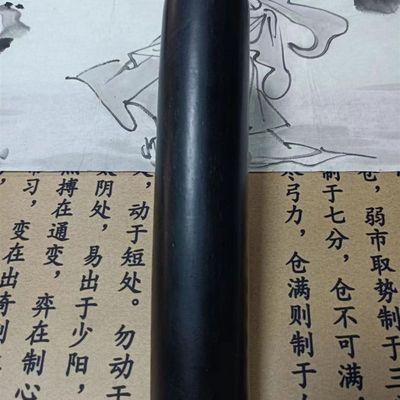 仓，弱市取势制于三
制于七分，仓不可满
尽弓力，仓满则制于
，动于短处。勿动于
太阴处，易出于少阳，
搏在通变，弈在制心
习，变在出奇制